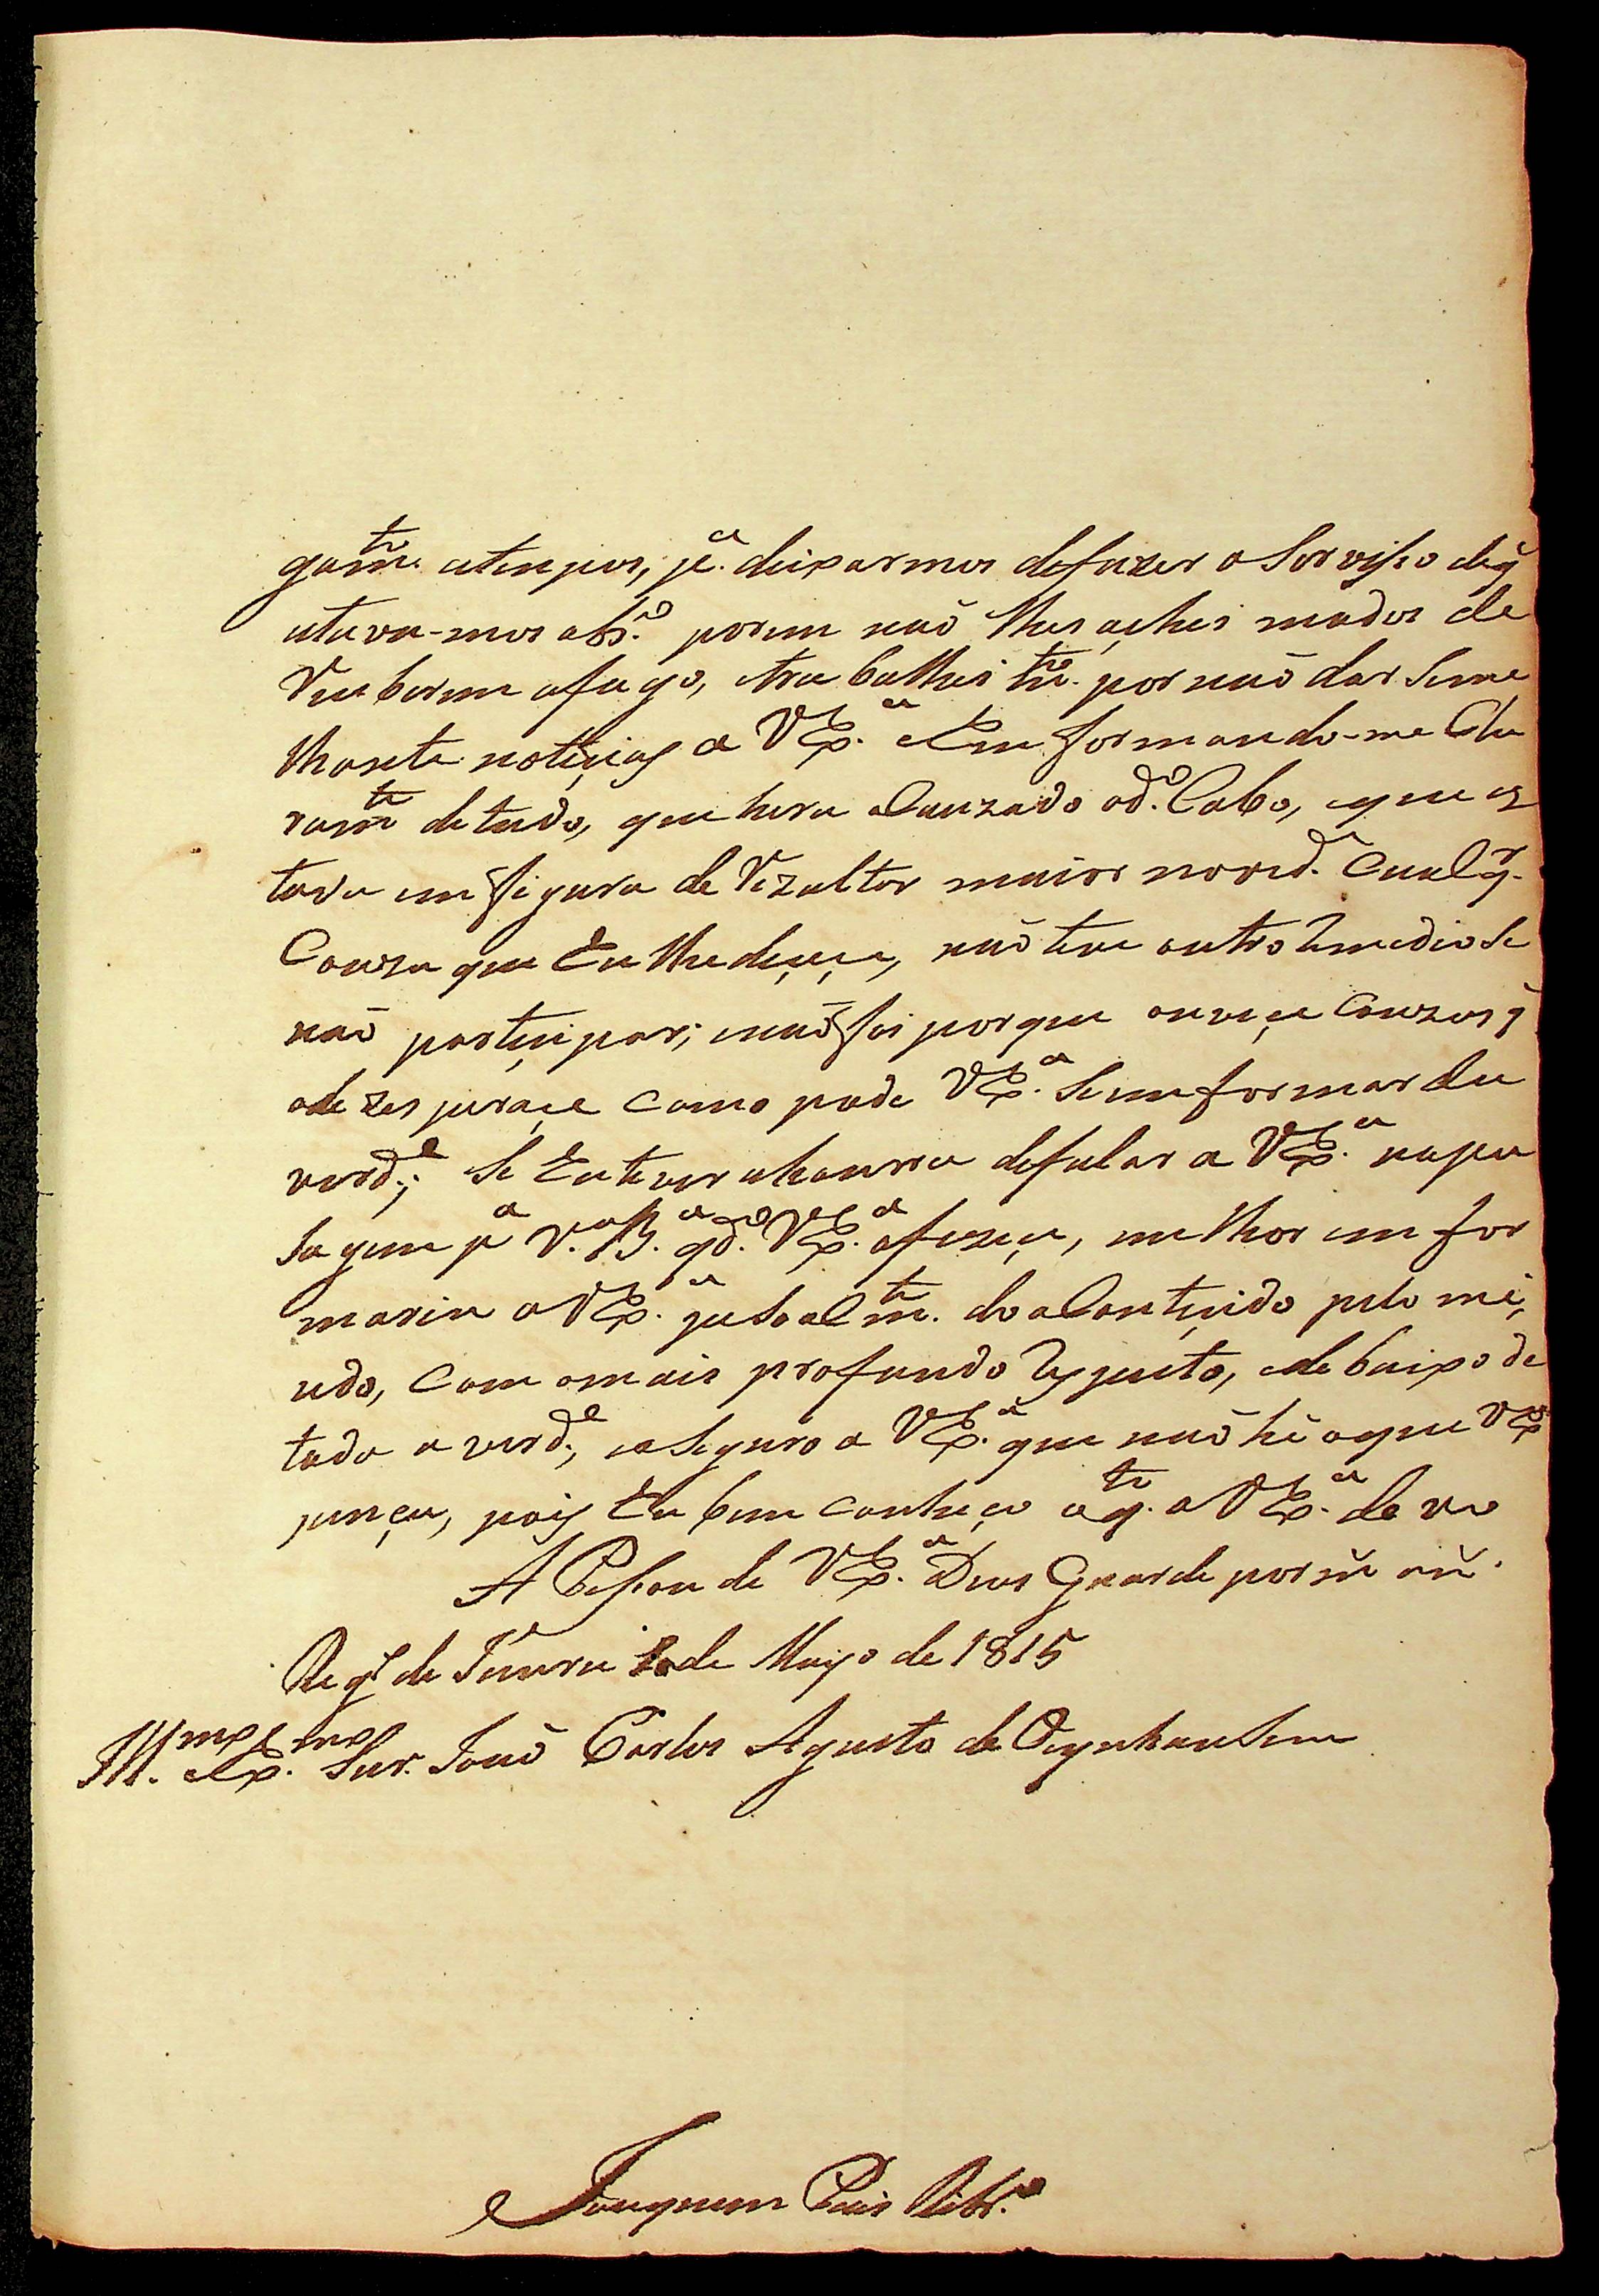 gam.te atenpos, p.a deixarmos defazer o Servisso deq̃
utava-mos abr.o porem naõ thes achei mados de
Vuberem afago, trabalhei m.to por naõ dar Seme
lhante notiçias a VEx.a e Em formando-me Cla
ram.te detudo, que hera Cauzado od.o Cabo, eque es
tava em figura de Vezultar maior novid.e Cualq.r
Couza que Eu lhe deçeçe, naõ tive outro Remedio Se
naõ partiçipar; enaõ foi porque ouveçe Couzas q̃
odezesperaçe Como pode VEx.a Seemformar da
verd.e; Se Eu tiver ahonrra defalar a VEx.a napa
Sagem p.a V.a B.a q.do VEx.a afizeçe, melhor emfor
maria a VEx.a pesoalm.te do aContiçido pelo mi,
udo, Com omais profundo Respeito, edebaixo de
toda a verd.e, aSeguro a VEx.a que naõ hé oque VEx.a
pença, pois Eu bem Conheço o q.to a VEx.a devo
A Pessoa de VEx.a Deus Guarde por m.s an.s
Reg.to de Jauru de Mayo de 1815
Ill.mo e Ex.mo Snr. Joaõ Carlos Agusto de Oeynhausem
Joaquim Pais Ribr.o